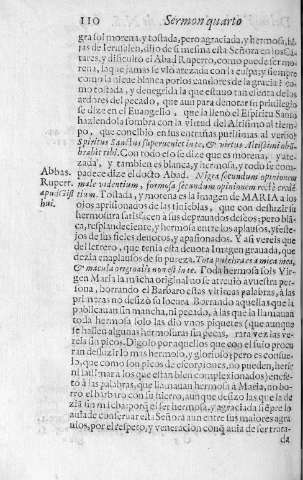 110 Sermon quarto
gra sol morena, y tostada, pero agraciada, y hermosa, hi-
jas de Ierusalen, dijo de si mesma esta Señora en los Can
tares, y dificultó el Abad Ruperto, como pueda ser mo
rena, la que jamas se vio atezada con la culpa; y siempre
como la nieue blanca por los candores de la gracia: co
mo tostada, y denegrida la que estuuo tan essenta de los
ardores del pecado, que aun para denotar su priuilegio
se dize en el Euangelio, que la llenó el Espiritu Santo
haziendola sombra con la virtud del Altissimo al tiem
po, que concibio en sus entrañas purissimas al verbo:
Spiritus Sanctus superueniet in te, & virtus Altissimi obu
brabit tibi. Con todo esso se dize que es morena, y ate-
zada, y tambien es blanca, y hermosa, y todo se com-
padece dize el docto Abad. Nigra secundum opinionem
Abbas.
Rupert.
male videntium, formosa secundum opinionem recte
Tostada, y morena es la imagen de MARIA a los
ojos apassionados de las tinieblas, que con desluzir su
hermosura satisfacen a sus deprauados deseos; pero blā-
ca, resplandeciente, y hermosa entre los aplausos, y feste-
jos de sus fieles deuotos, y apassionados. Y assi vereis que
del letrero, que tenia esta deuota Imagen grauada, que
dezia enaplausos de su pureza. Tota pulchra es amica mea,
& macula originalis non est in te. Toda hermosa sois Vir-
gen Maria la mancha original no se atreuio a vuestra per
sona, borrando el Barbaro estas vltimas palabras, à las
primeras no desluzó su locura. Borrando aquellas que la
publicauan sin mancha, ni pecado, à las que la llamauan
toda hermosa solo las dio vnos piquetes (que aunque
se hallen algunas hermosuras sin pecas, rara vez las ve-
reis sin picos. Digolo por aquellos que con el suyo procu
ran desluzir lo mas hermoso, y glorioso; pero es consue
lo, que como son picos de escorpiones, no pueden, herir
ni lastimar a los que estan bien complexionados) en efec-
to à las palabras, que llamauan hermosa à Maria, no bo-
rro el barbaro con su hierro, aunque desluzó las que la de
ziā sin mācha: porq̄ el ser hermosa, y agraciada siēpre lo
auia de conseruar esta Señora aun entre sus maiores agra
uios, por el respeto, y veneracion conq̄ auia de ser trata-
da